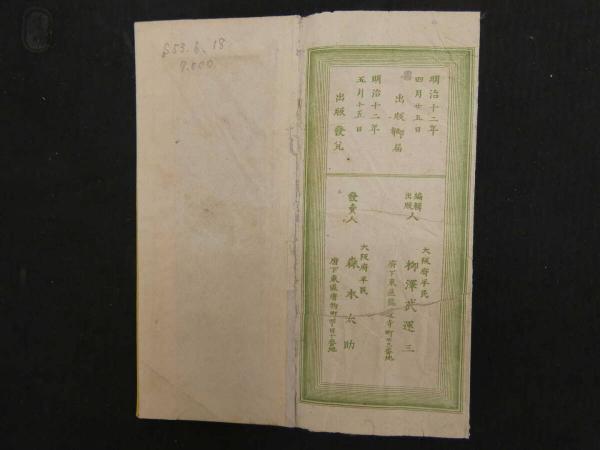 S53.6.18
7.000
明治十二年
四月廿五日
出版御届
明治十二年
五月十五日
出版發兌
編輯
出版人
大阪府平民
柳澤武運三
府下東區龍 寺町 番地
發賣人
大阪府平民
森本太助
府下東區唐物町 丁目 番地